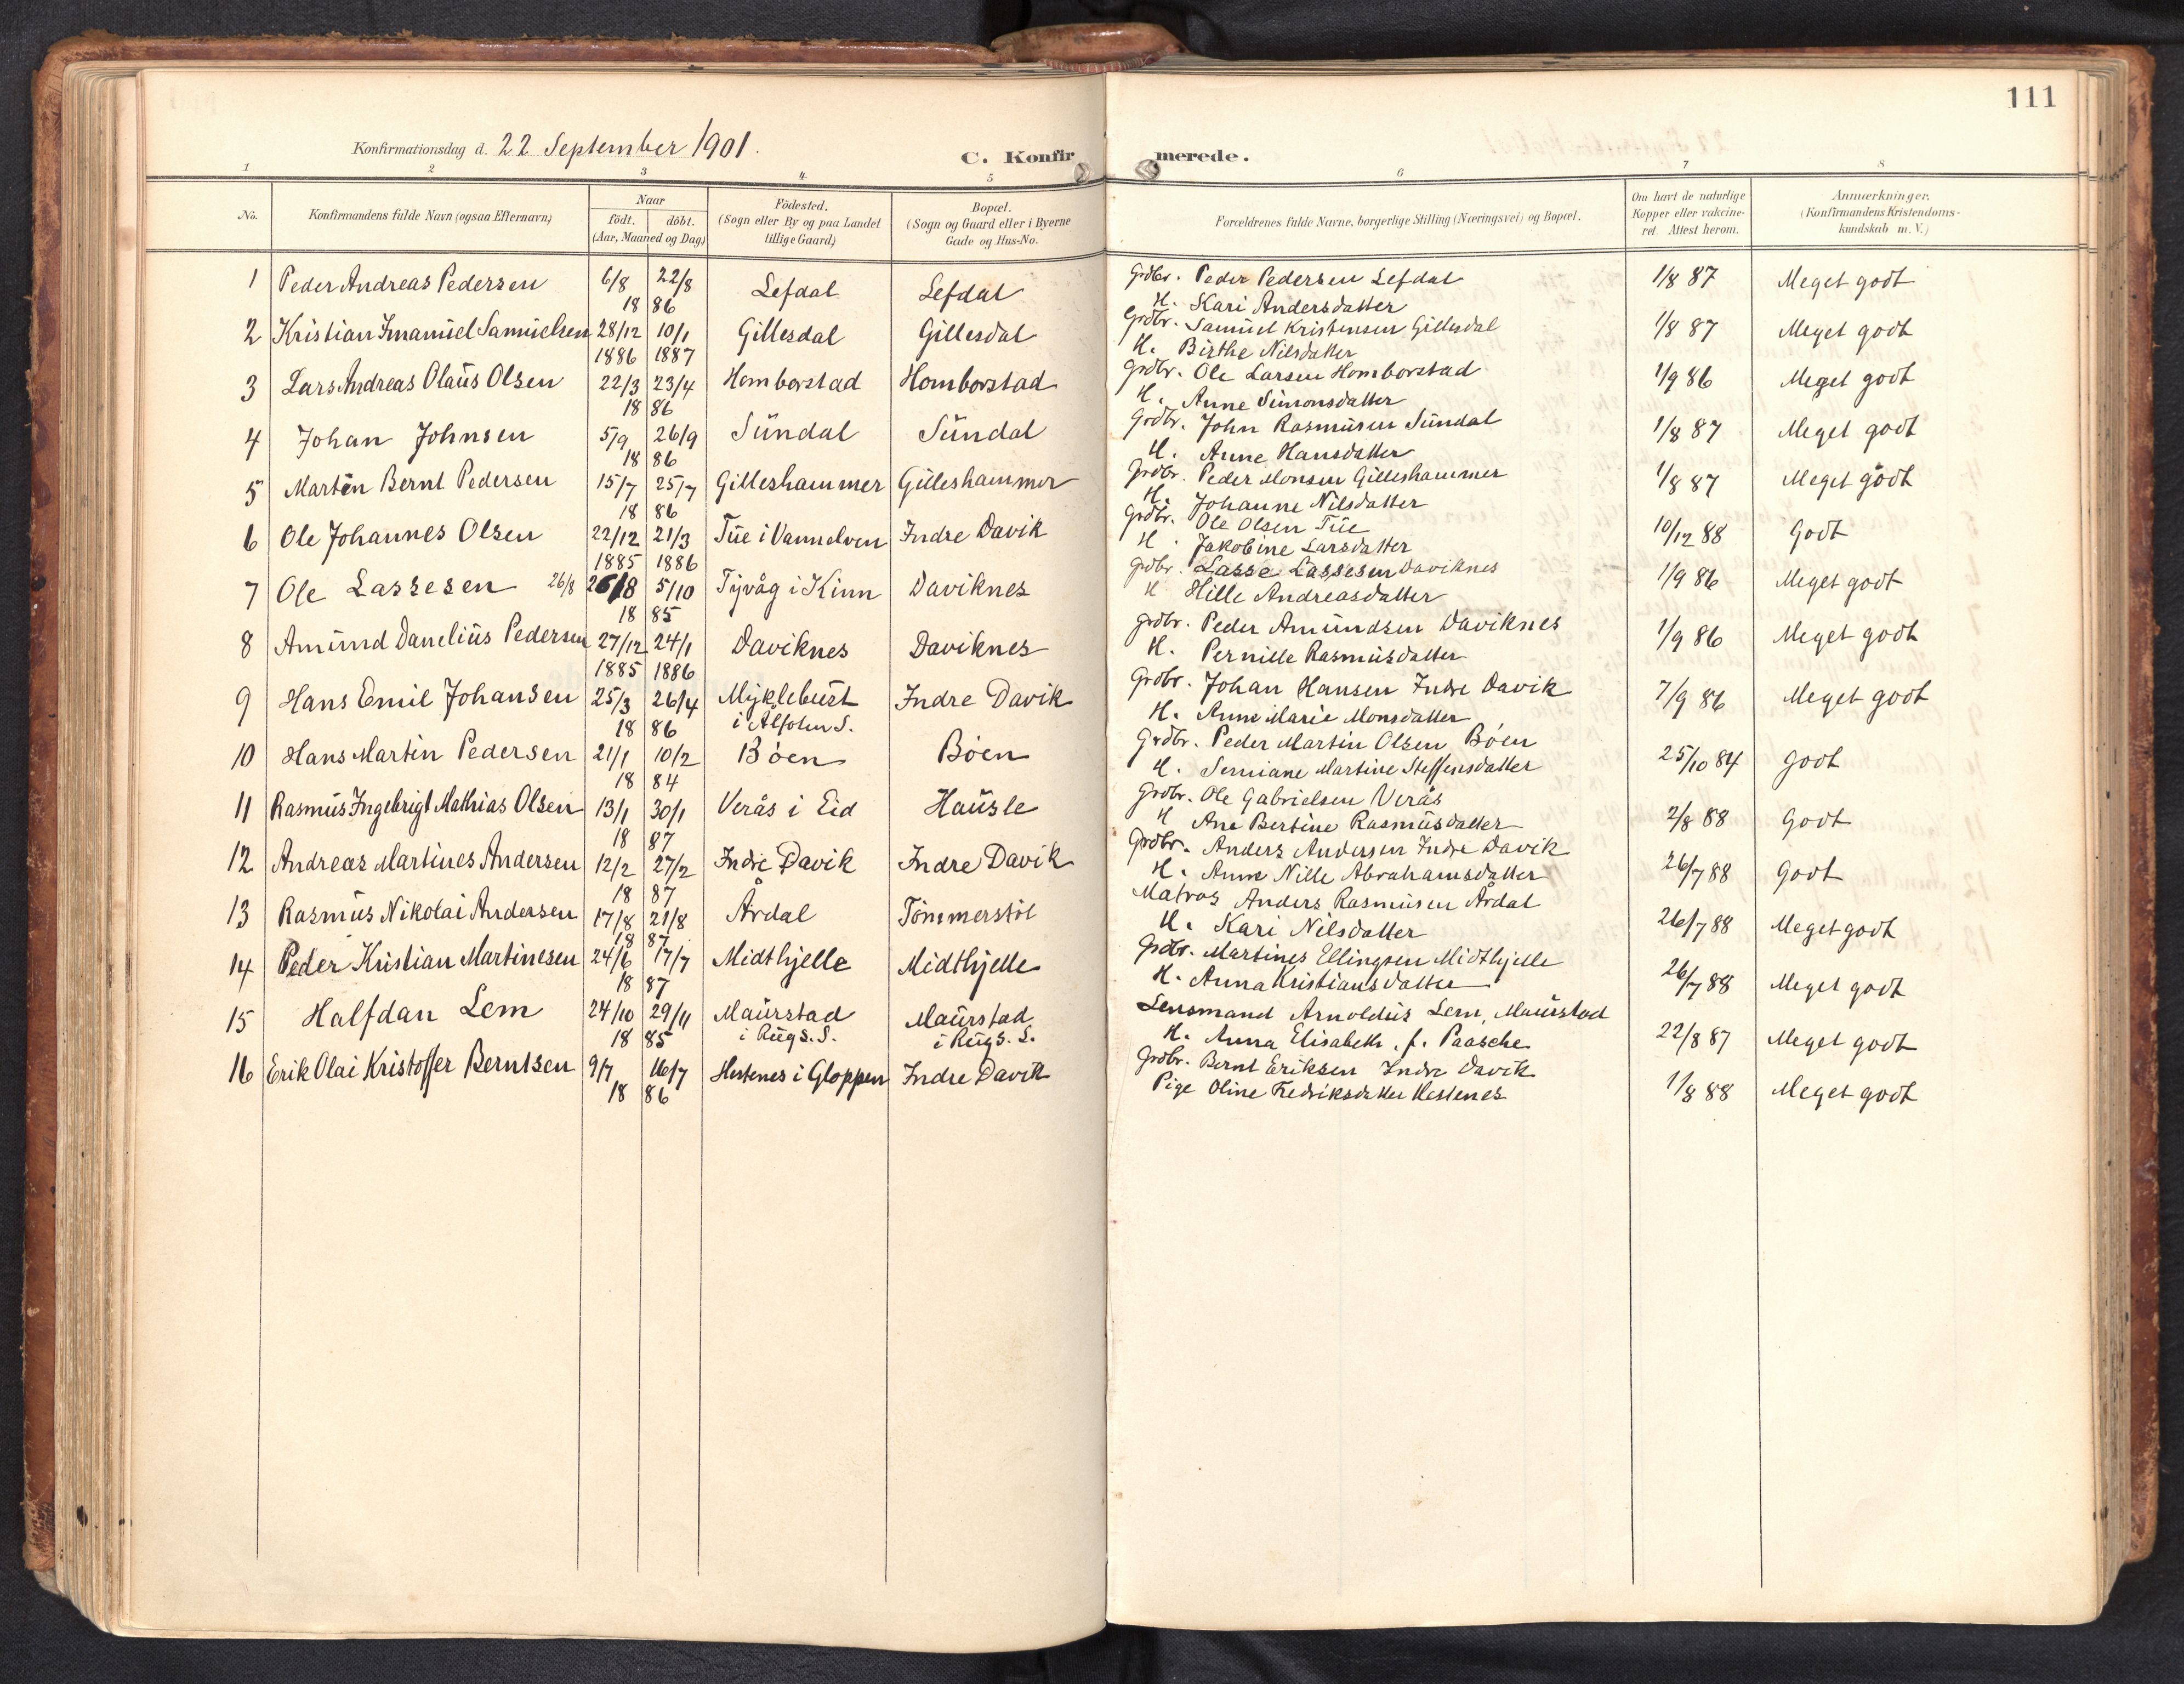 111
Konfirmationsdag d. 22 September 1901.
C. Konfirmerede.
1 2 3 4 5 6 7 8
No. Konfirmandens fulde Navn (ogsaa Efternavn) Naar födt. döbt. (Aar, Maaned og Dag) Födested. (Sogn eller By og paa Landet tillige Gaard) Bopæl. (Sogn og Gaard eller i Byerne Gade og Hus-No. Forældrenes fulde Navne, borgerlige Stilling (Næringsvei) og Bopæl. Om havt de naturlige Kopper eller vakcineret. Attest herom. Anmærkninger. (Konfirmandens Kristendomskundskab m. V.)
1 Peder Andreas Pedersen 6/8 22/8 Lefdal Lefdal Grdbr. Peder Pedersen Lefdal 1/8 87 Meget godt
18 86 H. Kari Andersdatter
2 Kristian Imanuel Samuelsen 28/12 10/1 Gillesdal Gillesdal Grdbr. Samuel Kristensen Gillesdal 1/8 87 Meget godt
1886 1887 H. Birthe Nilsdatter
3 Lars Andreas Olaus Olsen 22/3 23/4 Homborstad Homborstad Grdbr. Ole Larsen Homborstad 1/9 86 Meget godt
18 86 H. Anne Simonsdatter
4 Johan Johnsen 5/9 26/9 Sündal Sündal Grdbr. John Rasmusen Sündal 1/8 87 Meget godt
18 86 H. Anne Hansdatter
5 Martin Bernt Pedersen 15/7 25/7 Gilleshammer Gilleshammer Grdbr. Peder Monsen Gilleshammer 1/8 87 Meget godt
18 86 H. Johanne Nilsdatter
6 Ole Johannes Olsen 22/12 21/3 Tüe i Vannelven Indre Davik Grdbr. Ole Olsen Tüe 10/12 88 Godt
1885 1886 H. Jakobine Larsdatter
7 Ole Lassesen 26/8 26/8 5/10 Tyvåg i Kinn Daviknes Grdbr. Lasse Lassesen Daviknes 1/9 86 Meget godt
18 85 H Hille Andreasdatter
8 Amund Danelius Pedersen 27/12 24/1 Daviknes Daviknes Grdbr. Peder Amundsen Daviknes 1/9 86 Meget godt
1885 1886 H. Pernille Rasmusdatter
9 Hans Emil Johansen 25/3 26/4 Myklebust Indre Davik Grdbr. Johan Hansen Indre Davik 7/9 86 Meget godt
18 86 i Ålfoten S. H. Anne Marie Monsdatter
10 Hans Martin Pedersen 21/1 10/2 Böen Böen Grdbr. Peder Martin Olsen Böen 25/10 84 godt
18 84 H. Serniane Martine Steffensdatter
11 Rasmus Ingebrigt Mathias Olsen 13/1 30/1 Verås i Eid Hausle Grdbr. Ole Gabrielsen Verås 2/8 88 Godt
18 87 H Ane Bertine Rasmusdatter
12 Andreas Martines Andersen 12/2 27/2 Indre Davik Indre Davik Grdbr. Anders Andersen Indre Davik 26/7 88 Godt
18 87 H. Anne Nille Abrahamsdatter
13 Rasmus Nikolai Andersen 17/8 21/8 Årdal Tömmerstöl Matros Anders Rasmusen Årdal 26/7 88 Meget godt
18 87 H. Kari Nilsdatter
14 Peder Kristian Martinesen 24/6 17/7 Midthjelle Midthjelle Grdbr. Martines Ellingsen Midthjelle 26/7 88 Meget godt
18 87 H. Anna Kristiansdatter
15 Halfdan Lem 24/10 29/11 Maurstad Maurstad Lensmand Arnoldus Lem, Maurstad 22/8 87 Meget godt
18 85 i Rugs. S. i Rugs. S. H. Anna Elisabeth. f. Paasche
16 Erik Olai Kristoffer Berntsen 9/7 16/7 Hestenes i Gloppen Indre Davik Grdbr. Bernt Eriksen Indre Davik 1/8 88 Meget godt
18 86 Pige Oline Fredriksdatter Hestenes